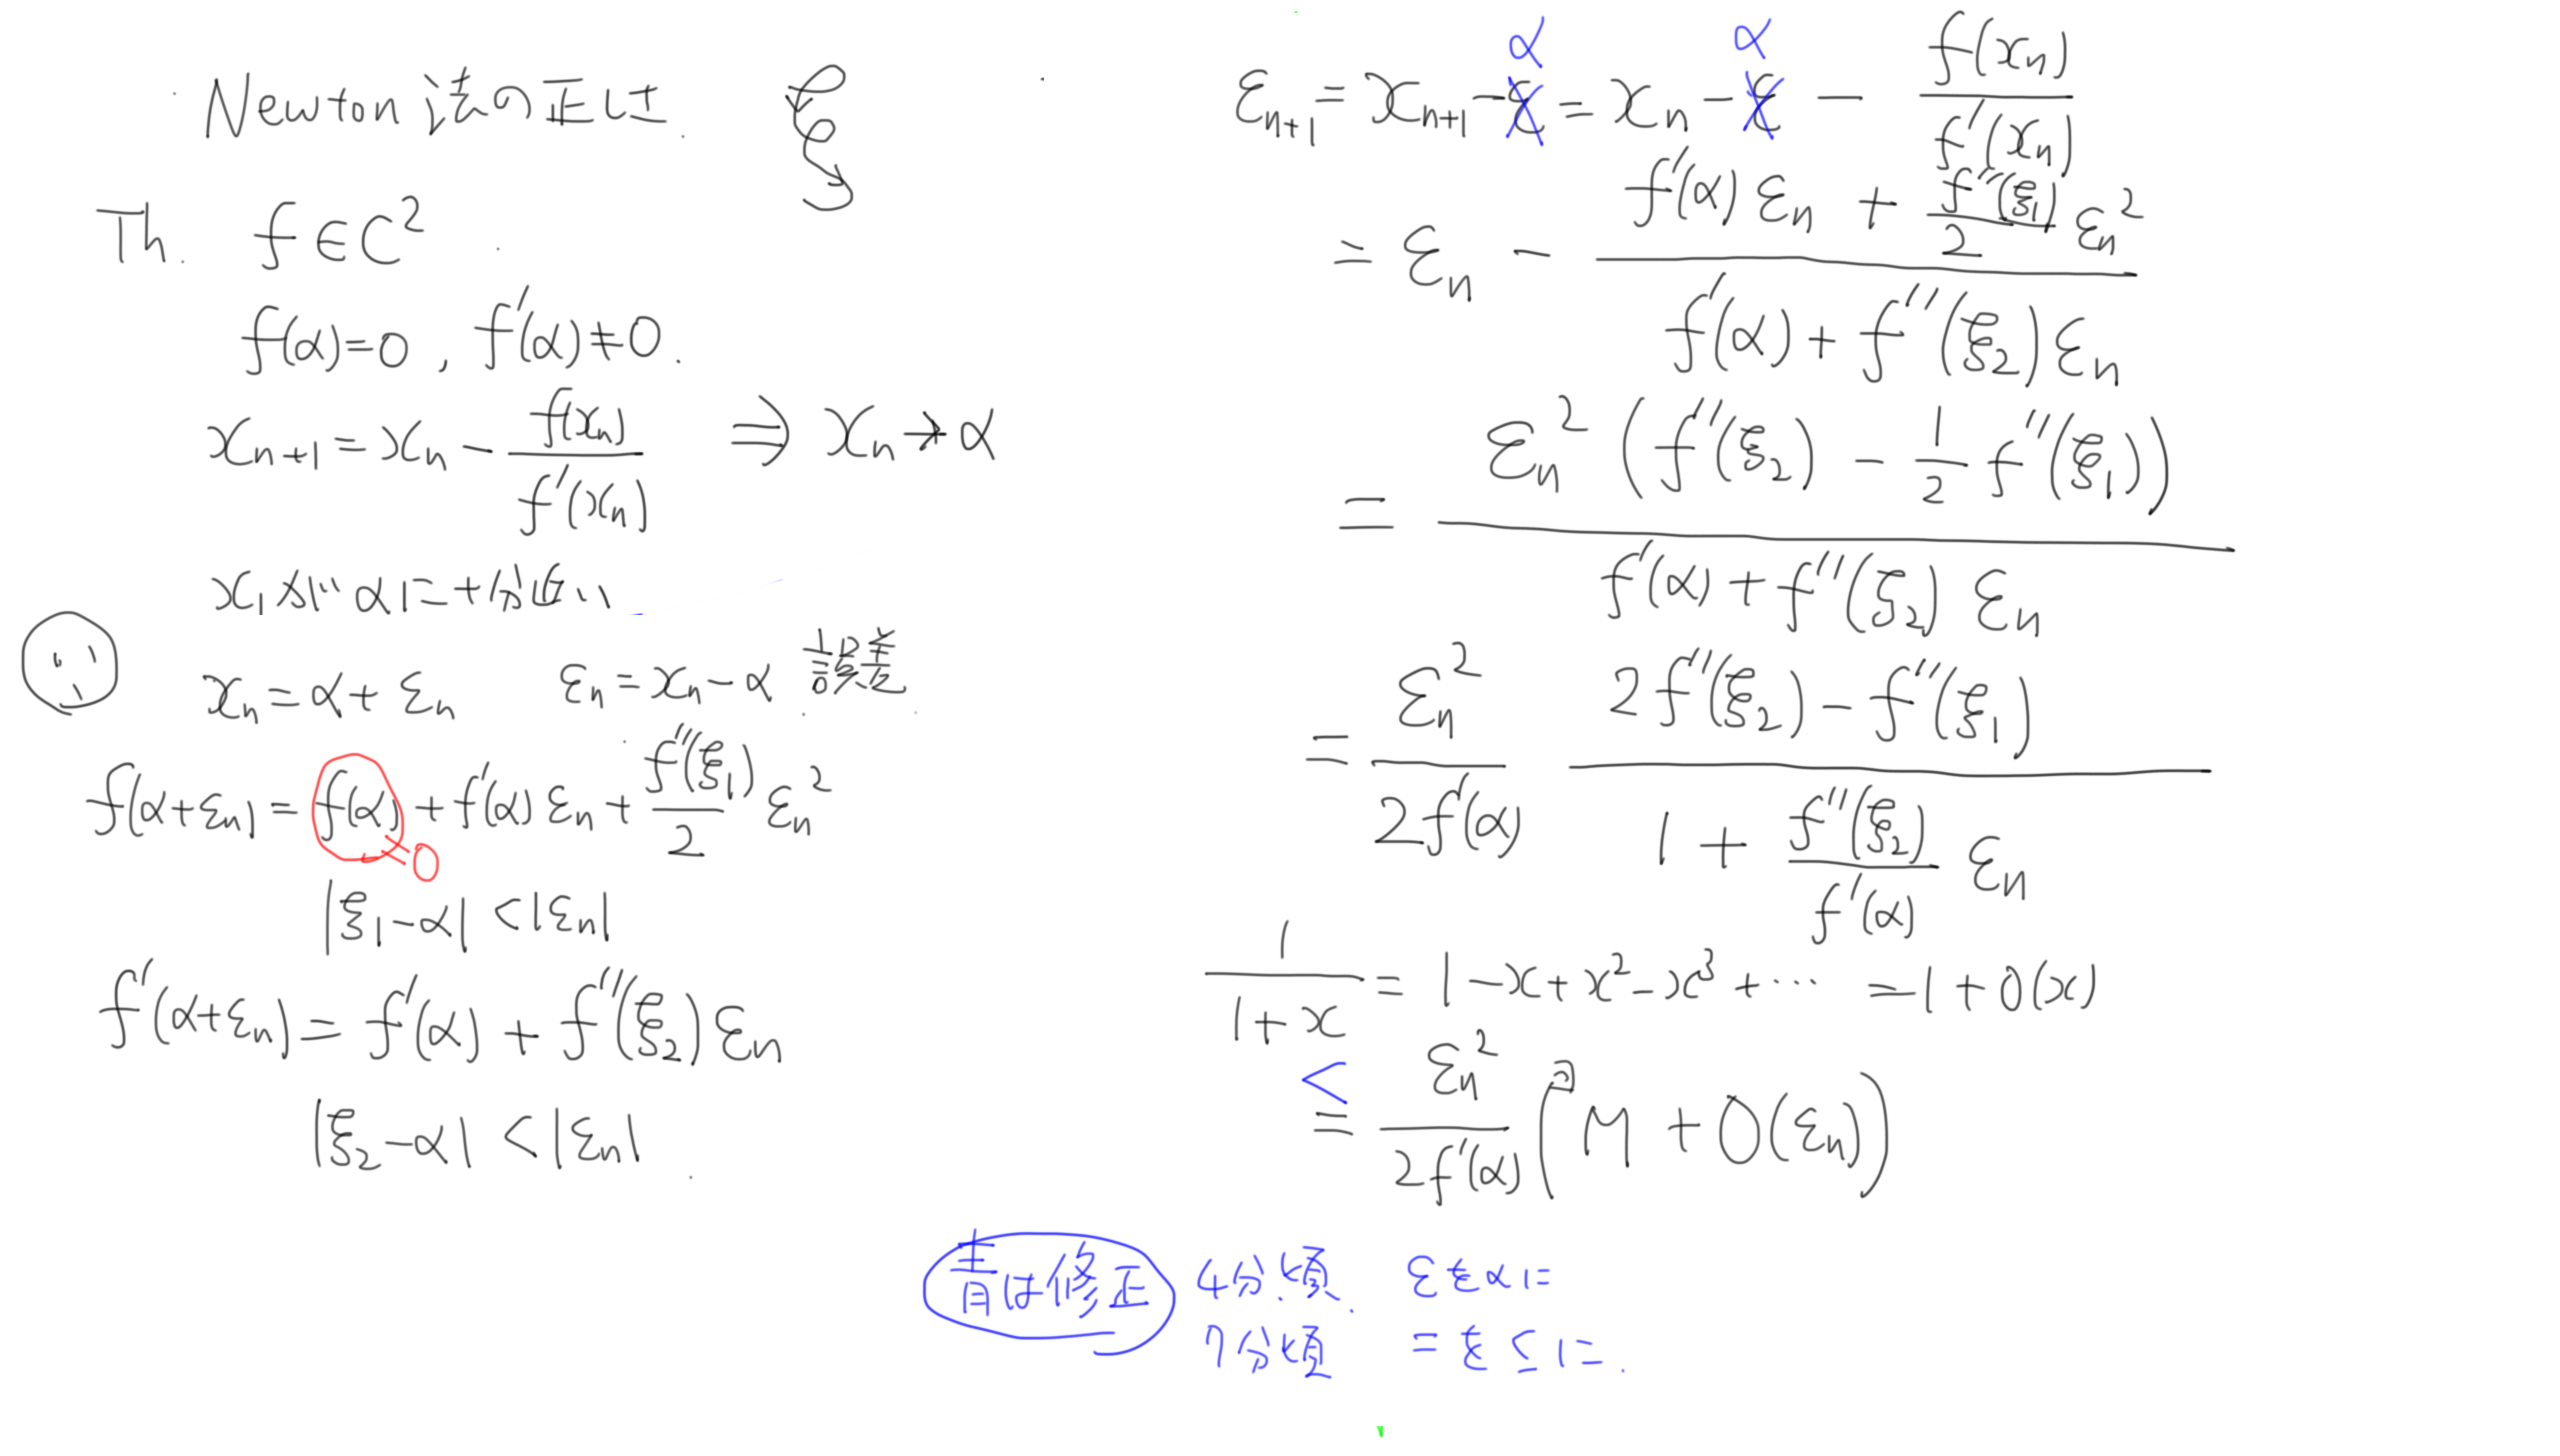 Newton法の正しさ ξ
Th. f∈C²
f(α)=0, f'(α)≠0.
xₙ₊₁ = xₙ - f(xₙ)/f'(xₙ) ⇒ xₙ→α
x₁が αに十分近い
xₙ=α+εₙ εₙ=xₙ-α 誤差
f(α+εₙ)=f(α)+f'(α)εₙ+f''(ξ₁)/2 εₙ²
=0
|ξ₁-α|<|εₙ|
f'(α+εₙ)=f'(α)+f''(ξ₂)εₙ
|ξ₂-α|<|εₙ|
α α
εₙ₊₁=xₙ₊₁-ε=xₙ-ε-f(xₙ)/f'(xₙ)
=εₙ-(f'(α)εₙ+f''(ξ₁)/2 εₙ²)/(f'(α)+f''(ξ₂)εₙ)
=εₙ²(f''(ξ₂)-1/2 f''(ξ₁))/(f'(α)+f''(ξ₂)εₙ)
=εₙ²/2f'(α) (2f''(ξ₂)-f''(ξ₁))/(1+f''(ξ₂)/f'(α) εₙ)
1/(1+x)=1-x+x²-x³+⋯=1+O(x)
≦ εₙ²/2f'(α) (∃M+O(εₙ))
青は修正 4分頃. εをαに
7分頃 =を≦に.